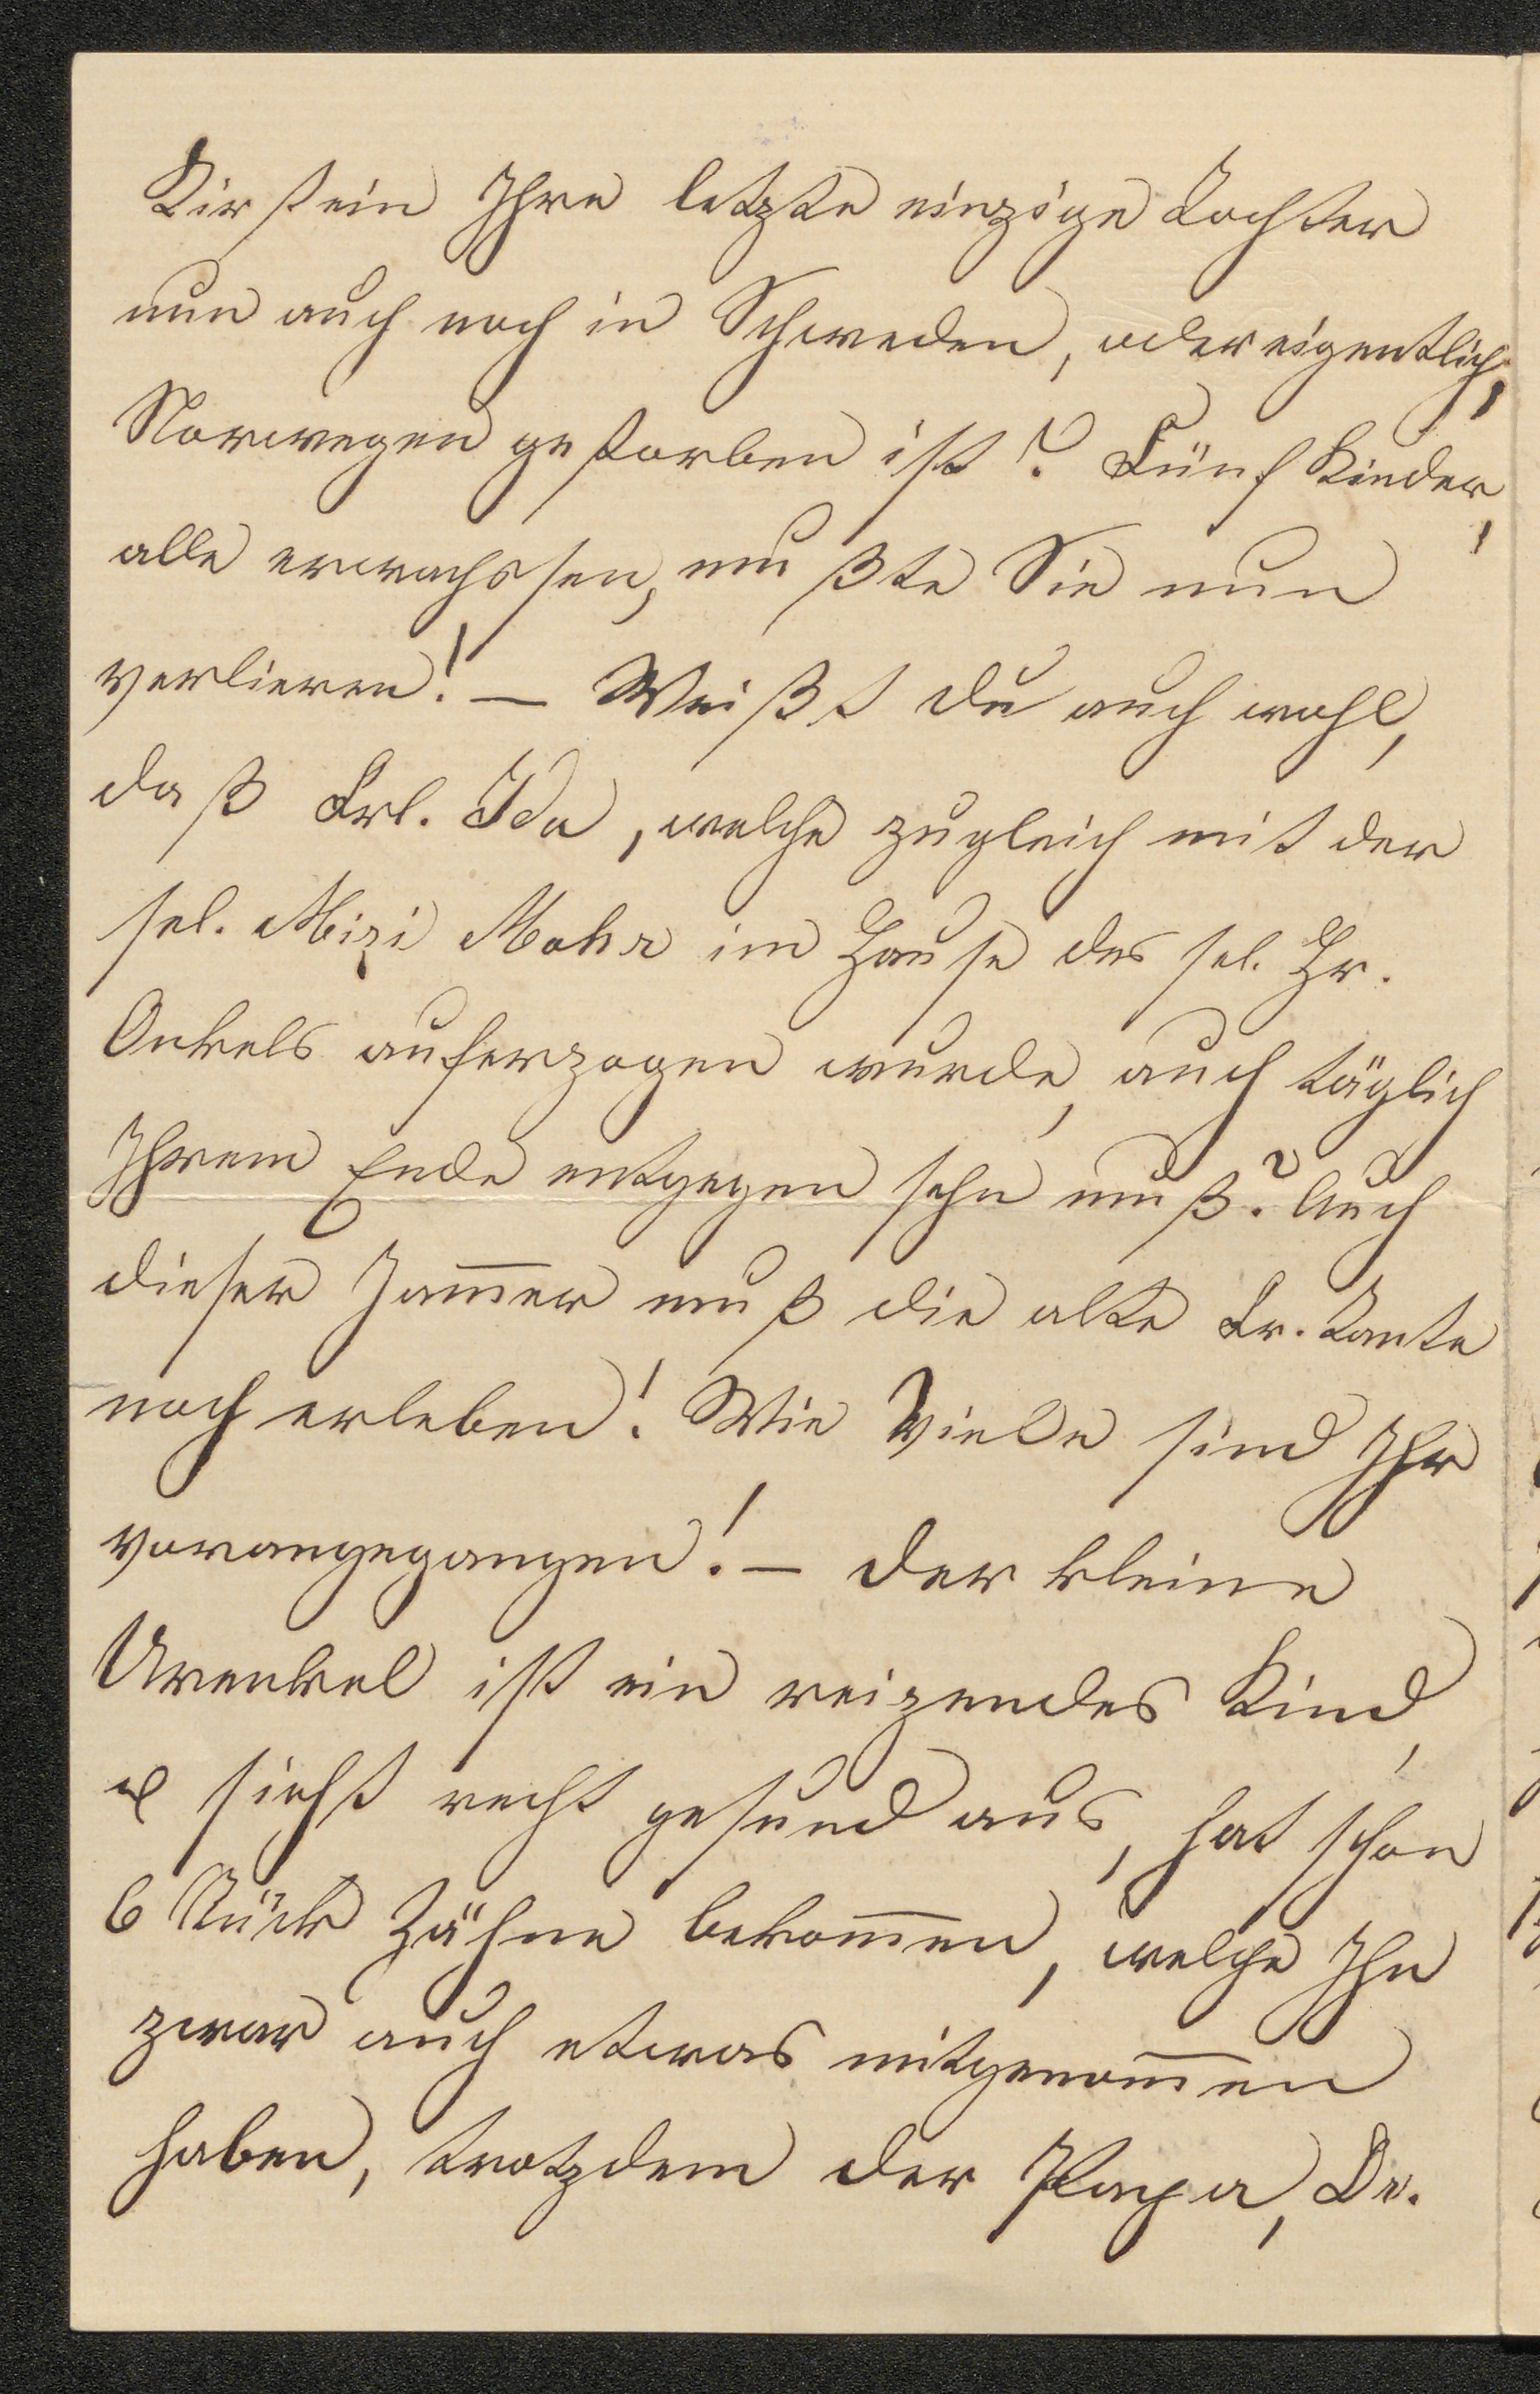 Kirstein Ihre letzte einzige Tochter
nun auch noch in Schweden, oder eigentlich,
Norwegen gestorben ist? Fünf Kinder,
alle erwachssen, mußte Sie nun
verlieren! — Weißt du auch wohl,
daß Frl. Ida, welche zugleich mit der
sel. Mizi Mohr im Hause des sel. Hr.
Onkels auferzogen wurde, auch täglich
Ihrem Ende entgegen sehn muß? Auch
dieser Jam̅er muß die alte Fr. Tante
noch erleben! Wie Viele sind Ihr
vorangegangen! — Der kleine
Urenkel ist ein reizendes Kind,
u sieht recht gesund aus, hat schon
6 Stück Zähne bekom̅en, welche Ihn
zwar auch etwas mitgenom̅en
haben, trotzdem der Papa, Dr.